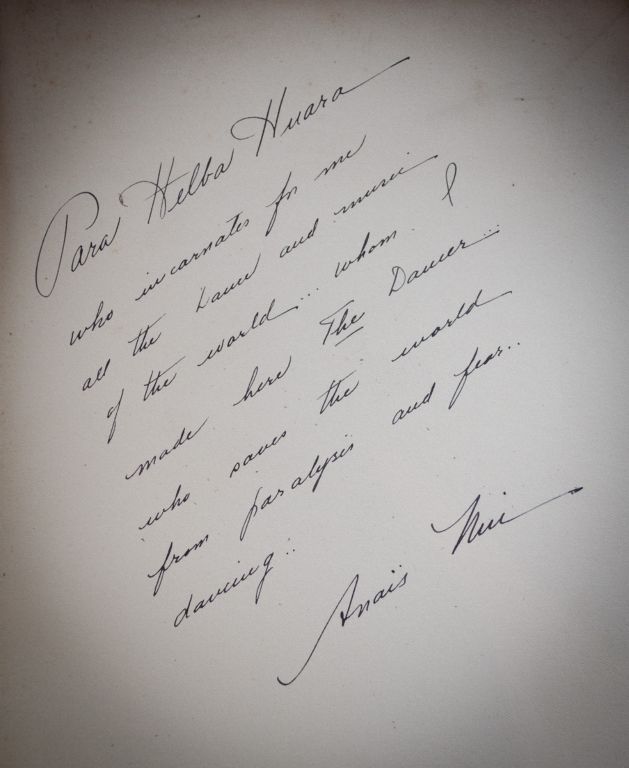 Para Helba Huara
who incarnates for me
all the dance and music
of the world... whom I
made here The Dancer...
who saves the world
from paralysis and fear..
dancing..
Anaïs Nin